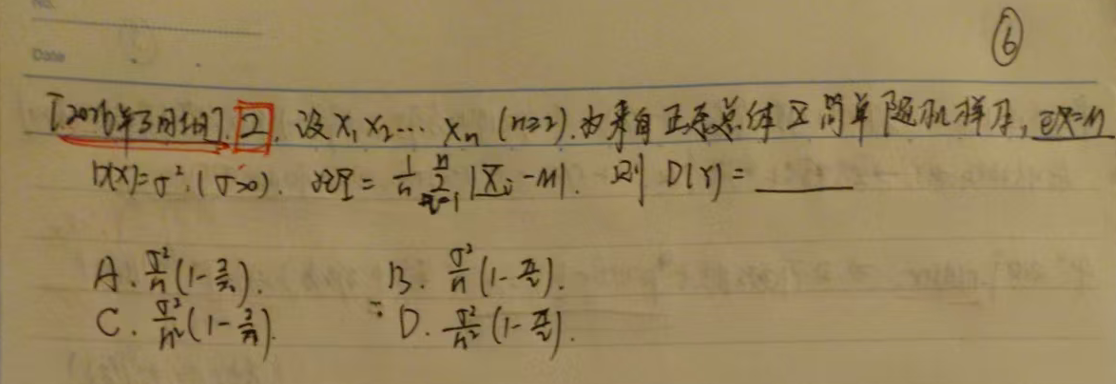 No.
Date
⑥
[2026年3月1日]. 2. 设 X₁ X₂ … Xₙ (n≥2). 为来自正态总体 X 简单随机样本, EX=μ
D(X)=σ². (σ>0). 记Y = 1/n ∑ᵢ₌₁ⁿ |Xᵢ-μ|. 则 D(Y) = ______
A. σ²/n (1-2/π). B. σ²/n (1-π/2).
C. σ²/n² (1-2/π). D. σ²/n² (1-π/2).